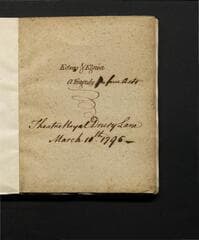 Edwy & Elgiva
a Tragedy in five Acts
Theatre Royal Drury Lane
March 10th 1795 —